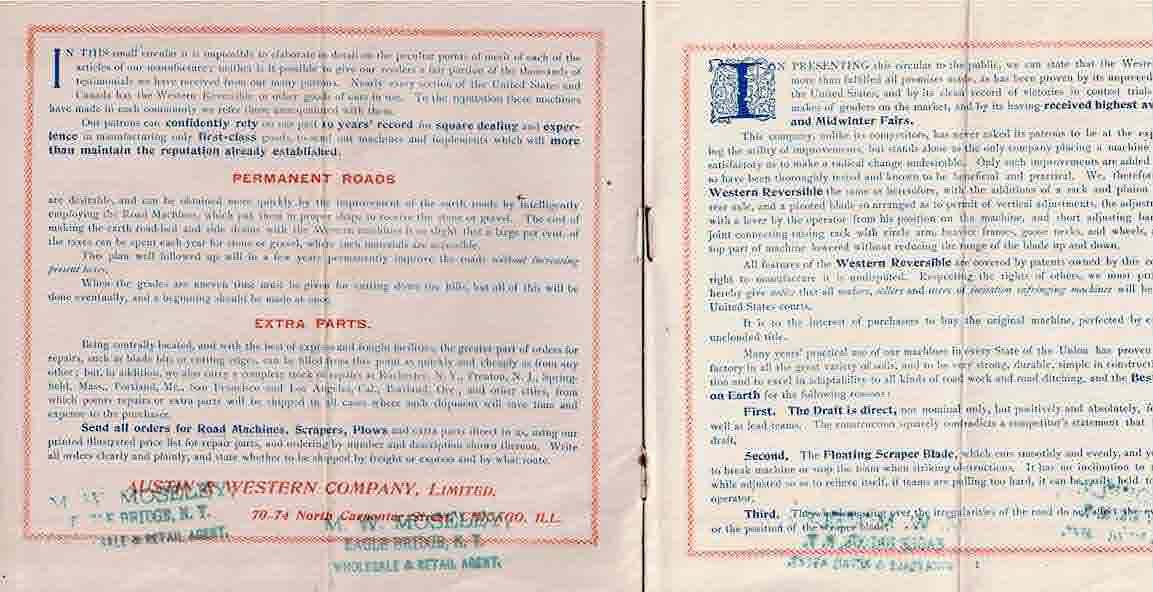 IN THIS small circular it is impossible to elaborate in detail on the peculiar points of merit of each of the
articles of our manufacture; neither is it possible to give our readers a fair portion of the thousands of
testimonials we have received from our many patrons. Nearly every section of the United States and
Canada has the Western Reversible, or other goods of ours in use. To the reputation these machines
have made in each community we refer those unacquainted with them.
Our patrons can confidently rely on our past 10 years' record for square dealing and exper-
ience in manufacturing only first-class goods, to send out machines and implements which will more
than maintain the reputation already established.
PERMANENT ROADS
are desirable, and can be obtained more quickly by the improvement of the earth roads by intelligently
employing the Road Machines, which put them in proper shape to receive the stone or gravel. The cost of
making the earth road-bed and side drains with the Western machines is so slight that a large per cent. of
the taxes can be spent each year for stone or gravel, where such materials are accessible.
This plan well followed up will in a few years permanently improve the roads without increasing
present taxes.
When the grades are uneven time must be given for cutting down the hills, but all of this will be
done eventually, and a beginning should be made at once.
EXTRA PARTS.
Being centrally located, and with the best of express and freight facilities, the greater part of orders for
repairs, such as blade bits or cutting edges, can be filled from this point as quickly and cheaply as from any
other; but, in addition, we also carry a complete stock of repairs at Rochester, N. Y., Trenton, N. J., Spring-
field, Mass., Portland, Me., San Francisco and Los Angeles, Cal., Portland, Ore., and other cities, from
which points repairs or extra parts will be shipped in all cases where such shipment will save time and
expense to the purchaser.
Send all orders for Road Machines, Scrapers, Plows and extra parts direct to us, using our
printed illustrated price list for repair parts, and ordering by number and description shown thereon. Write
all orders clearly and plainly, and state whether to be shipped by freight or express and by what route.
AUSTIN & WESTERN COMPANY, LIMITED,
70-74 North Carpenter Street, CHICAGO, ILL.
M. W. MOSELEY,
BRIDGE, N. Y.
& RETAIL AGENT.
M. W. MOSELEY
EAGLE BRIDGE, N. Y.
WHOLESALE & RETAIL AGENT.
IN PRESENTING this circular to the public, we can state that the Western
more than fulfilled all promises made, as has been proven by its unpreced
the United States, and by its clean record of victories in contest trials
makes of graders on the market, and by its having received highest aw
and Midwinter Fairs.
This company, unlike its competitors, has never asked its patrons to be at the exp
ing the utility of improvements, but stands alone as the only company placing a machine
satisfactory as to make a radical change undesirable. Only such improvements are added
to have been thoroughly tested and known to be beneficial and practical. We, therefor
Western Reversible the same as heretofore, with the additions of a rack and pinion
rear axle, and a pivoted blade so arranged as to permit of vertical adjustments, the adjust
with a lever by the operator from his position on the machine, and short adjusting bar
joint connecting raising rack with circle arm, heavier frames, goose necks, and wheels, a
top part of machine lowered without reducing the range of the blade up and down.
All features of the Western Reversible are covered by patents owned by this co
right to manufacture it is undisputed. Respecting the rights of others, we must pr
hereby give notice that all makers, sellers and users of imitation infringing machines will be
United States courts.
It is to the interest of purchasers to buy the original machine, perfected by e
unclouded title.
Many years' practical use of our machines in every State of the Union has proven
factory in all the great variety of soils, and to be very strong, durable, simple in constructi
tion and to excel in adaptability to all kinds of road work and road ditching, and the Best
on Earth for the following reasons:
First. The Draft is direct, not nominal only, but positively and absolutely, f
well as lead teams. The construction squarely contradicts a competitor's statement that
draft.
Second. The Floating Scraper Blade, which cuts smoothly and evenly, and y
to break machine or stop the team when striking obstructions. It has no inclination to
while adjusted so as to relieve itself, if teams are pulling too hard, it can be easily held to
operator.
Third. over the irregularities of the road do not
or the position of the scraper blade.
1